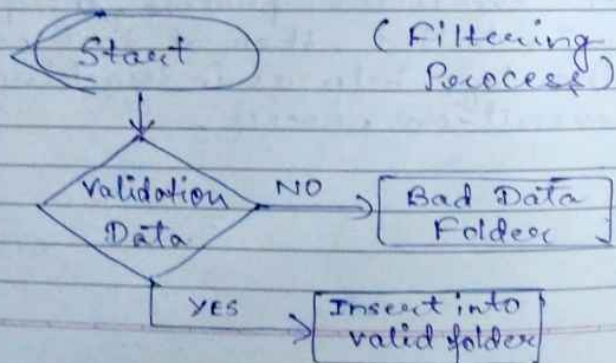 Start
(Filtering
Process)
Validation
Data
NO
Bad Data
Folder
YES
Insert into
valid folder